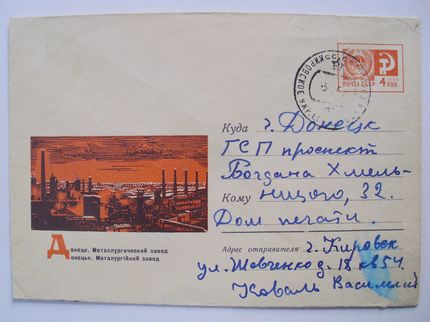 ПОЧТА СССР
4
КОП
КИРОВСКОЕ
Куда г. Донецк
ГСП проспект
Богдана Хмель-
Кому ницого, 32.
Дом печати.
Донецк. Металлургический завод
Донецьк. Металургійний завод
Адрес отправителя г. Кировск
ул. Шевченко д. 18 кв 54
Коваль Василий